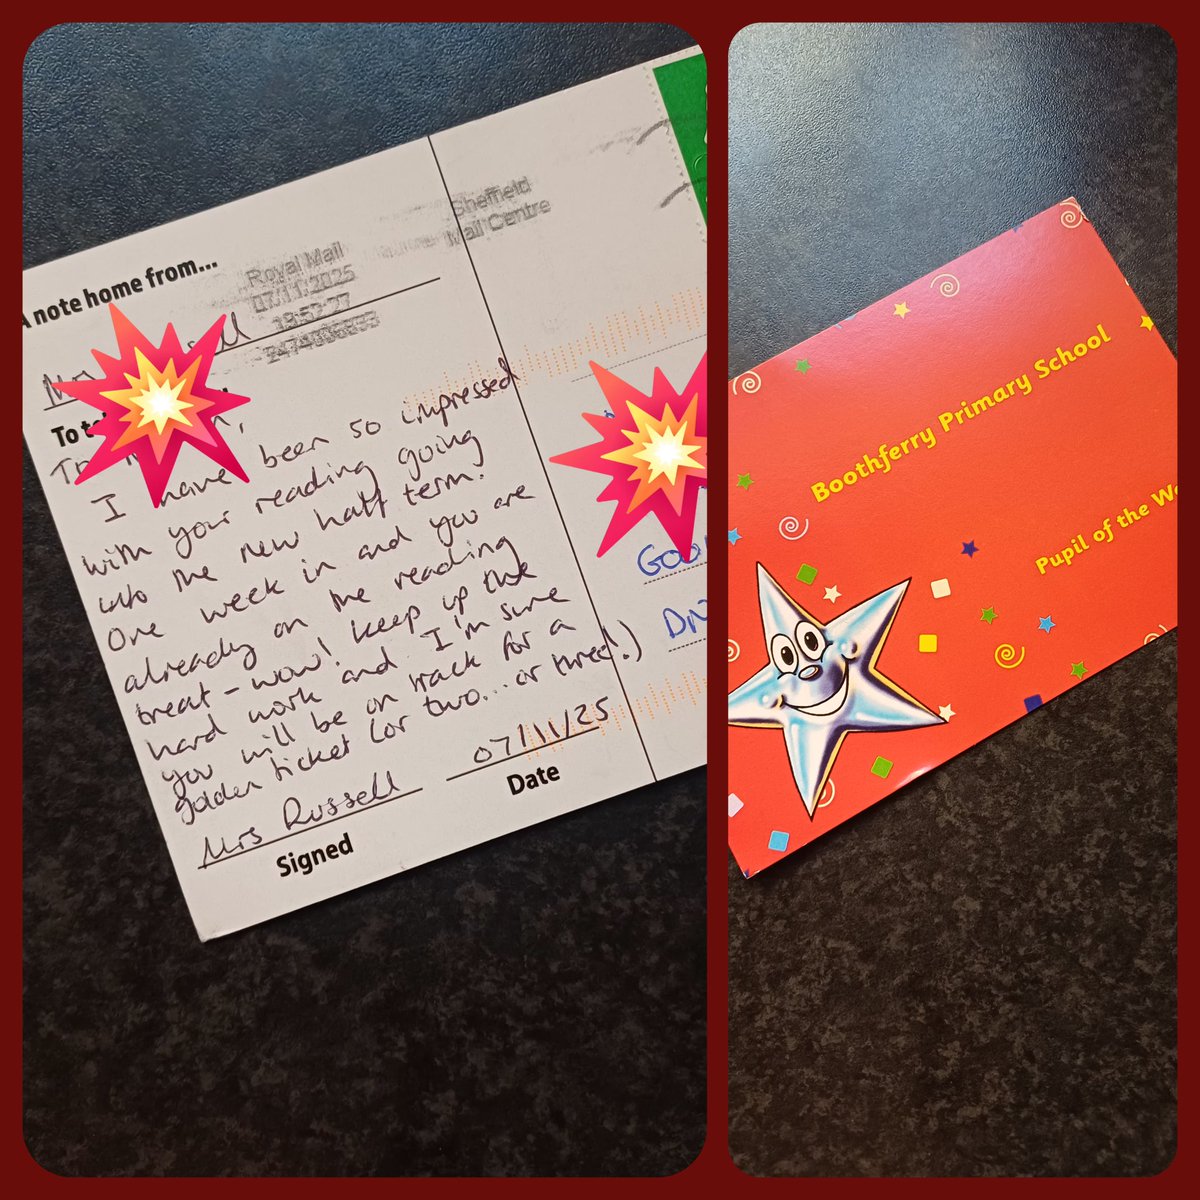 A note home from...
Royal Mail
07/11/2025
19:53:27
Sheffield
Mail Centre
I have been so impressed
with your reading going
into the new half term.
One week in and you are
already on the reading
treat - wow! keep up the
hard work and I'm sure
you will be on track for a
golden ticket (or two... or three!)
Mrs Russell
07/11/25
Signed
Date
Boothferry Primary School
Pupil of the